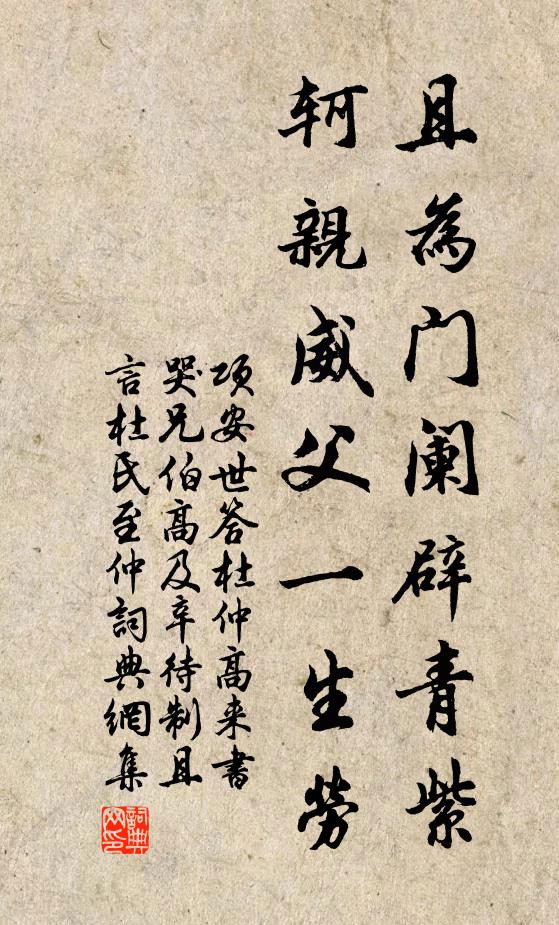 且為门阑辟青紫
轲親威父一生勞
项安世答杜仲高来書
哭兄伯高及辛待制且
言杜氏至仲詞典網集
詞典网印